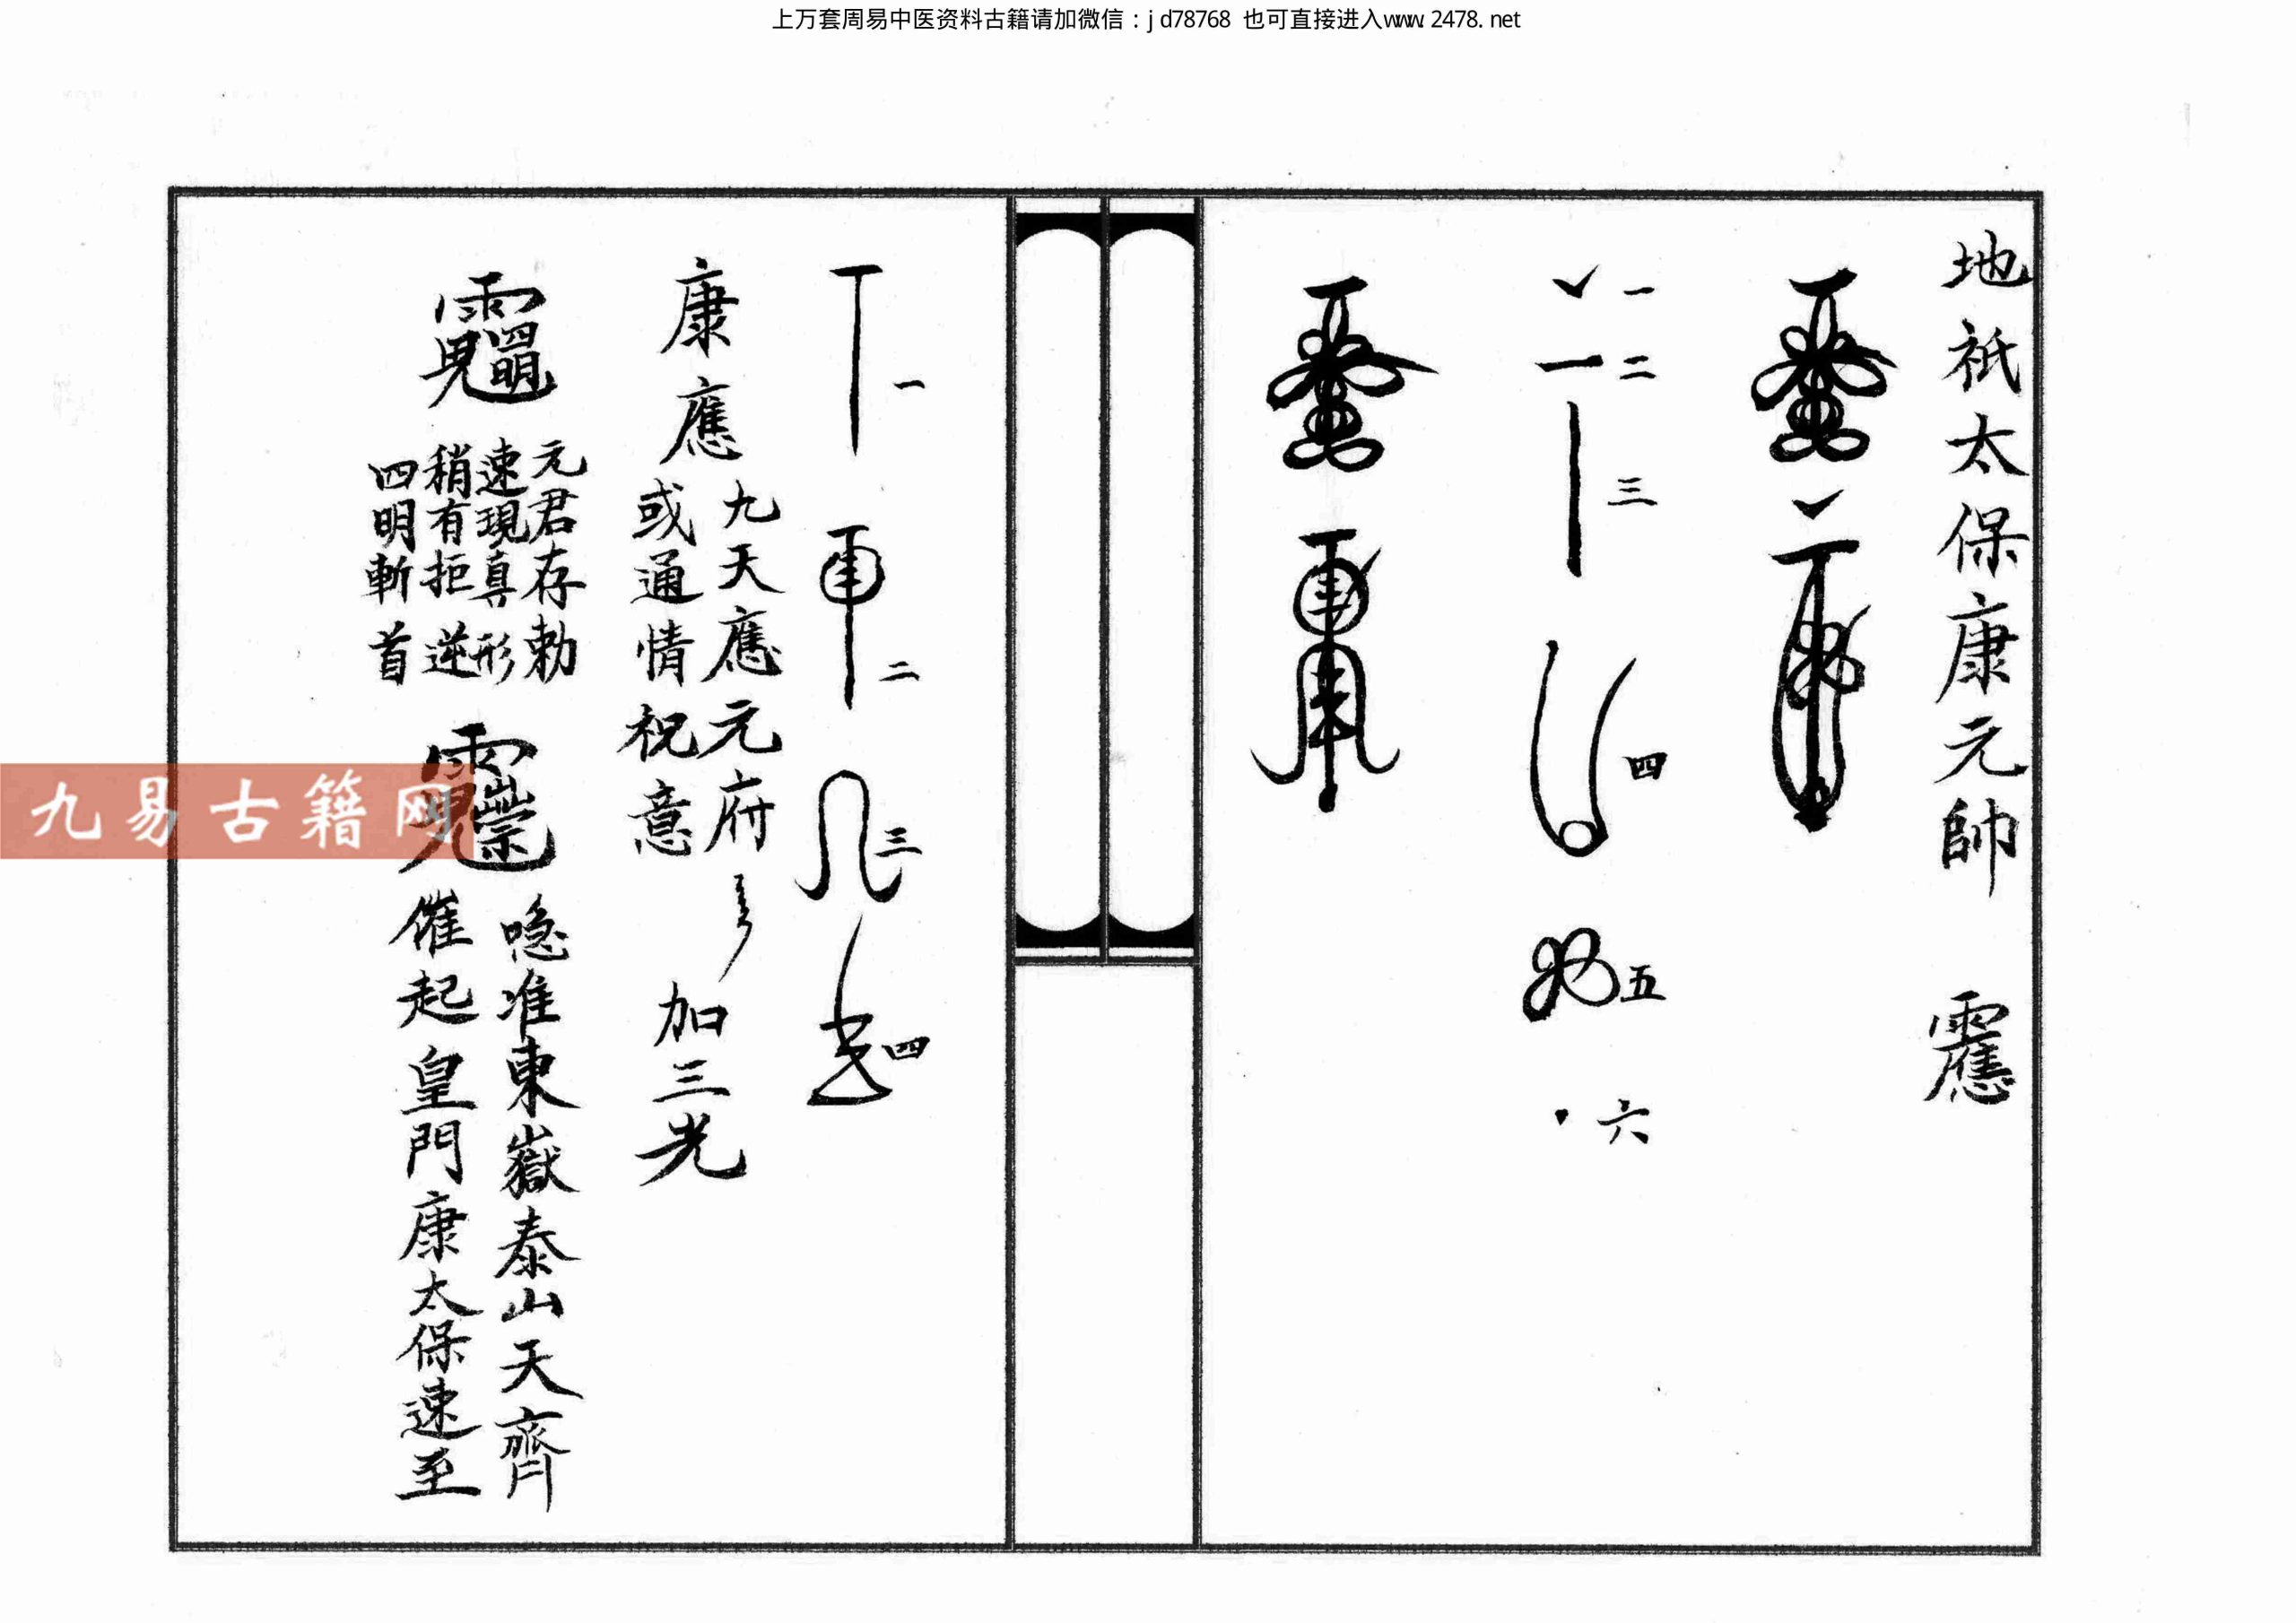 上万套周易中医资料古籍请加微信：jd78768 也可直接进入www.2478.net
地祇太保康元帥
一
二
三
四
五
六
一
二
三
四
康應
九天應元府
或通情祝意
加三光
元君存勅
速現真形
稍有拒逆
四明斬首
准東嶽泰山天齊
催起皇門康太保速至
九易古籍网